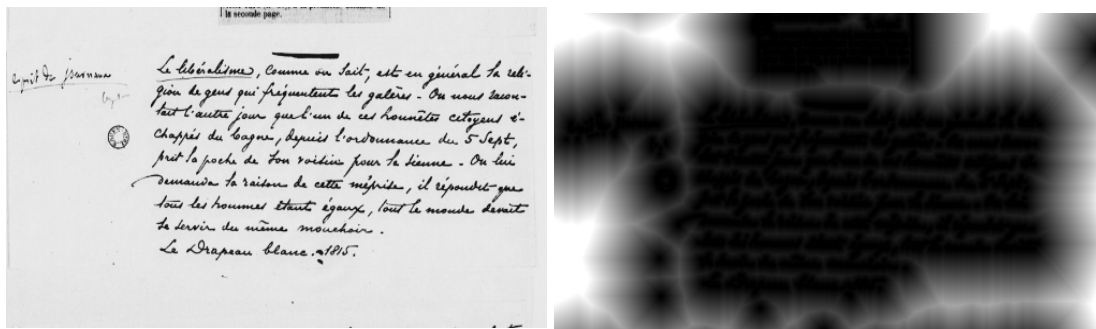 la seconde page.
esprit de journaux
Le libéralisme, comme on sait, est en général la reli-
gion de gens qui fréquentent les galères - On nous racon-
tait l'autre jour que l'un de ces honnêtes citoyens é-
chappés du bagne, depuis l'ordonnance du 5 Sept,
prit la poche de son voisin pour la sienne - On lui
demanda la raison de cette méprise, il répondit que
tous les hommes étant égaux, tout le monde devait
se servir du même mouchoir.
Le Drapeau blanc. - 1815.